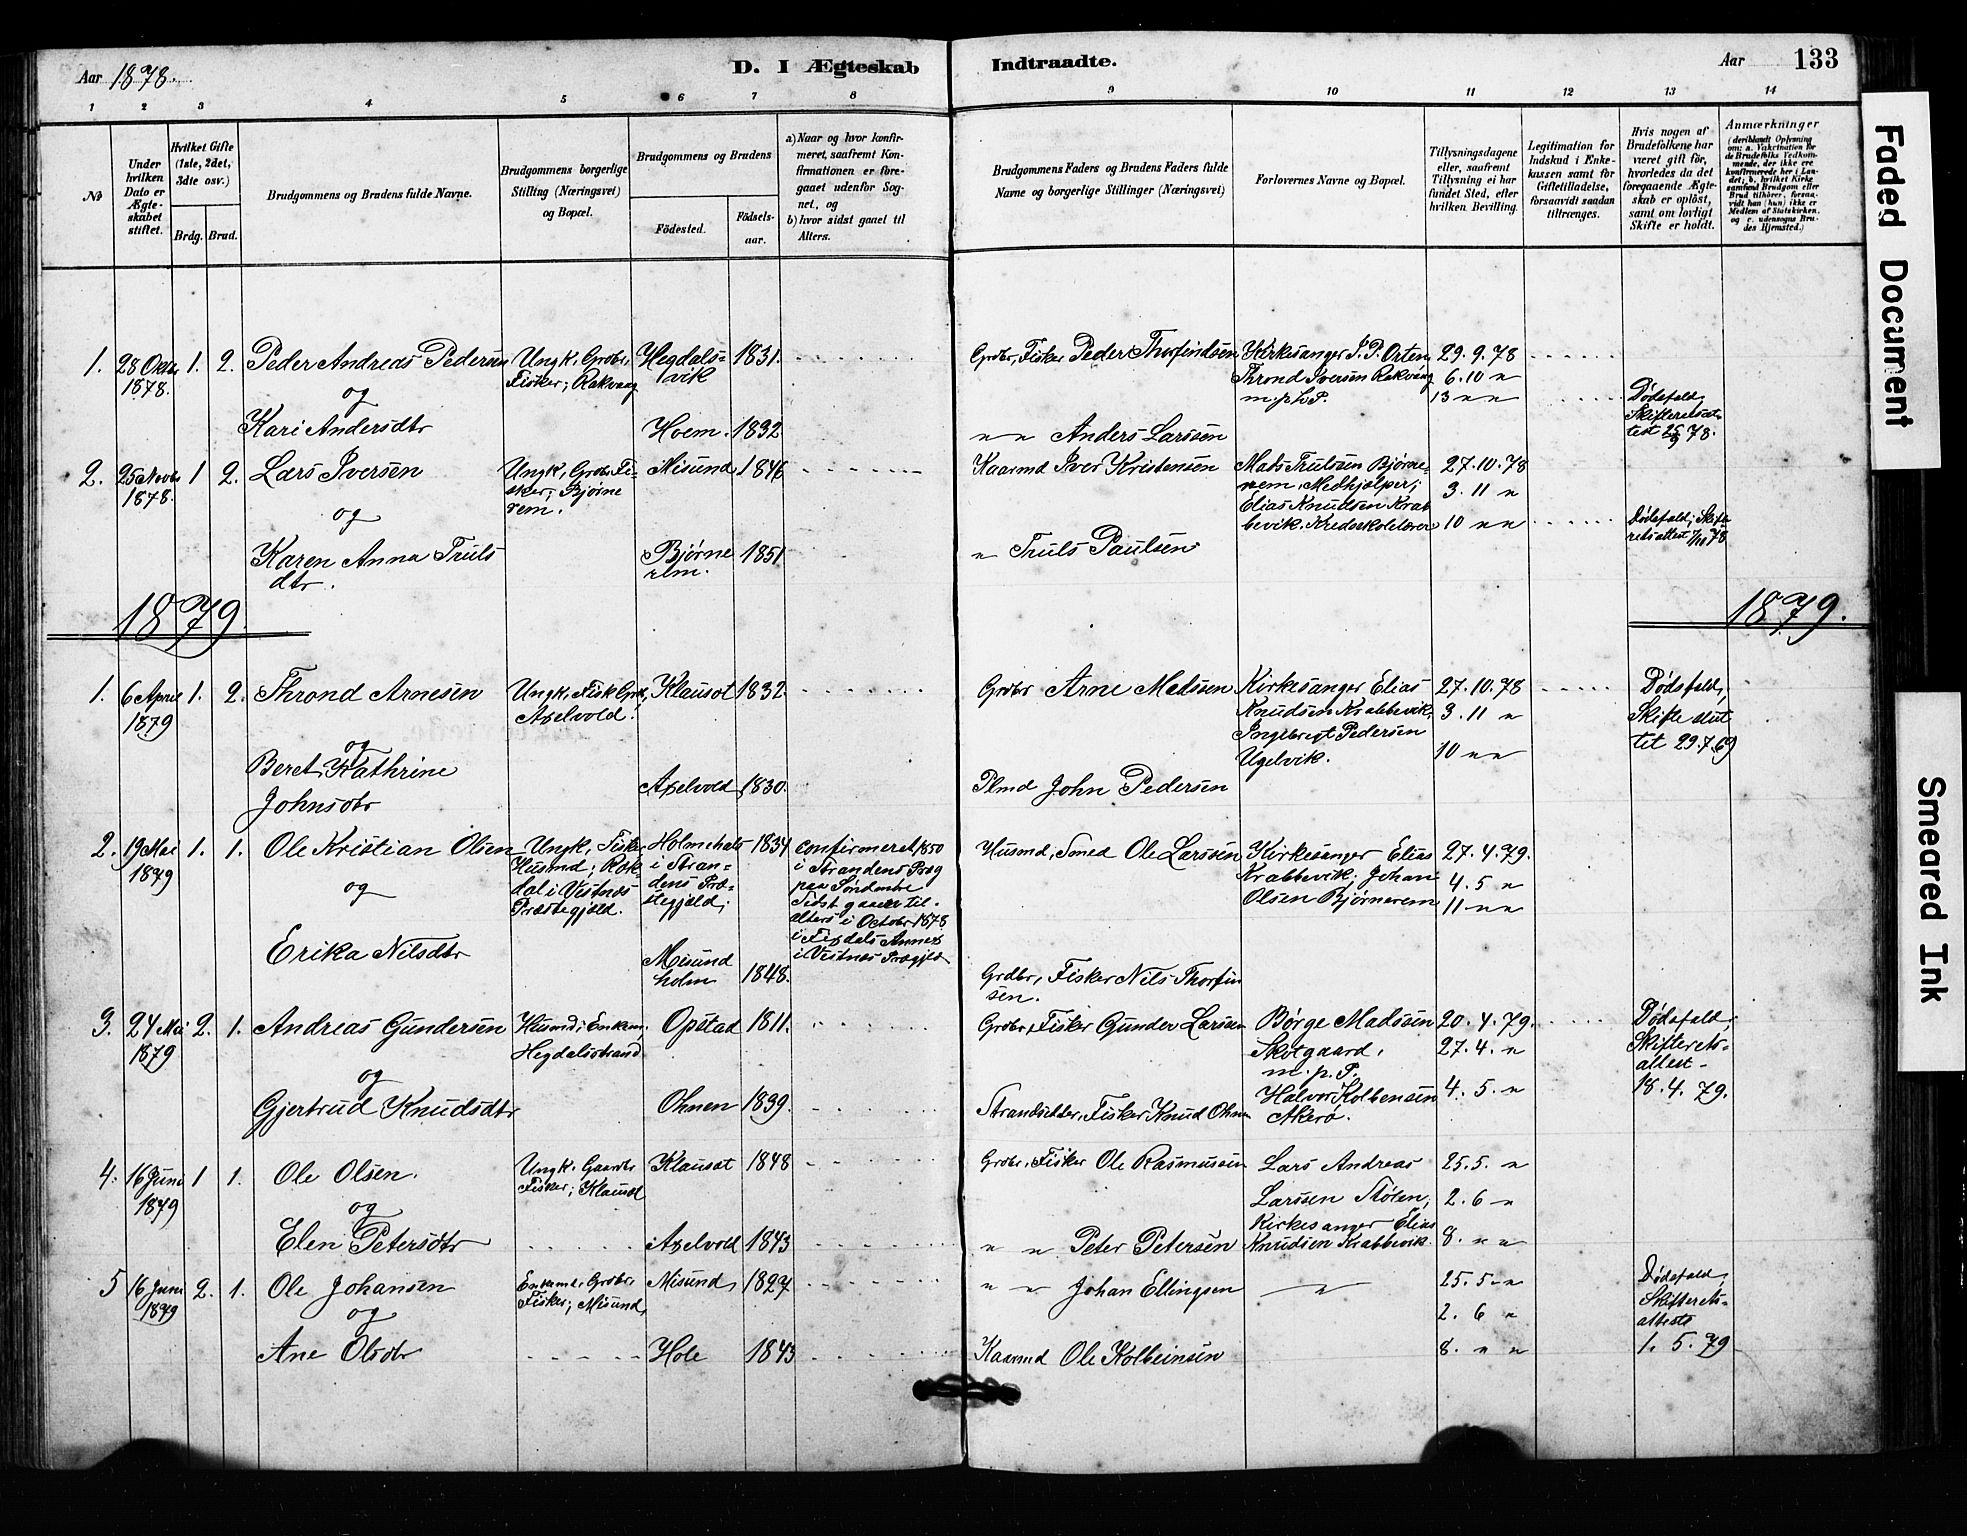 Aar 1878.
D. I Ægteskab
Indtraadte.
Aar 133
1 2 3 4 5 6 7 8
9 10 11 12 13 14
No
Under hvilken Dato er Ægteskabet stiftet.
Hvilket Gifte (1ste, 2det, 3dte osv.)
Brdg. Brud.
Brudgommens og Brudens fulde Navne.
Brudgommens borgerlige Stilling (Næringsvei) og Bopæl.
Brudgommens og Brudens
Födested.
Födselsaar.
a) Naar og hvor konfirmeret, saafremt Konfirmationen er foregaaet udenfor Sognet, og
b) hvor sidst gaaet til Alters.
Brudgommens Faders og Brudens Faders fulde Navne og borgerlige Stillinger (Næringsvei)
Forlovernes Navne og Bopæl.
Tillysningsdagene eller, saafremt Tillysning ei har fundet Sted, efter hvilken Bevilling.
Legitimation for Indskud i Enkekassen samt for Giftetilladelse, forsaavidt saadan tiltrænges.
Hvis nogen af Brudefolkene har været gift för, hvorledes da det foregaaende Ægteskab er oplöst, samt om lovligt Skifte er holdt.
Anmærkninger
(deriblandt Oplysning om: a. Vaksination for de Brudefolks Vedkommende, der ikke ere konfirmerede her i Landet; b. hvilket Kirkesamfund Brudgom eller Brud tilhörer, forsaavidt han (hun) ikke er Medlem af Statskirken, og c. udensogns Brudes Hjemsted.)
1. 28 Oktbr 1878. 1. 2. Peder Andreas Pedersen
og
Kari Andersdtr
Ungk. Grdbr. Fisker; Rakvaag
Hegdalsvik 1831.
Hoem. 1832
Grdbr, Fisker Peder Thorfindsen
" " Anders Larssen
Kirkesanger P. P. Orten,
Thrond Iversen Rakvaag
m. p. P.
29.9.78
6.10 "
13 " "
Dødsfald, Skifteretsattest 78.
2. 25 Novbr 1878. 1 2. Lars Iversen
og
Karen Anna Trulsdtr.
Ungk, Grdbr. Fisker; Bjørnerem.
Misund 1846
Bjørnerem. 1851
Kaarmd Iver Kristensen
" Truls Paulsen
Mads Trulssen Bjørnerem, Medhjælper;
Elias Knudsen Krabbevik, Kredsskolelærer
27.10.78
3.11 "
10 " "
Dødsfald; Skifteretsattest 78
1879.
1879.
1. 6 April 1879 1. 2. Thrond Arnesen
og
Beret Kathrine
Johnsdtr
Ungk. Fisk Grdbr, Axelvold.
Klauset 1832
Axelvold 1830.
Grdbr Arne Madssen
Plmd John Pedersen
Kirkesanger Elias
Knudsen Krabbevik,
Ingebrigt Pedersen
Ugelvik.
27.10.78
3.11 "
10 " "
Dødsfald,
Skifte sluttet 29.7.69
2. 19 Mai 1879 1. 1. Ole Kristian Olsen
og
Erika Nilsdtr
Ungk, Fisker
Husmd; dal i Vestnæs
Præstegjeld.
i Strandens Præstegjeld;
1834
Misund
holm 1848.
confirmeret 1850
i Strandens Præg
Sidst gaaen til
alters i Octobr 1878
i Fixdals Annex
i Vestnæs Prægjeld
Husmd, Smed Ole Larssen
Grdbr, Fisker Nils Thorfinsen.
Kirkesanger Elias
Krabbevik; Johan
Olsen Bjørnerem
27.4.79.
4.5 "
11 " "
3. 24 Mai 1879 2. 1. Andreas Gundersen
og
Gjertrud Knudsdtr
Husmd; Enkem,
Hegdalsstrand
Opstad 1811.
Ohnen 1839.
Grdbr, Fisker Gunder Larssen
Strandsidder, Fisker Knud Ohnen
Børge Madssen
Skotgaard,
m. p. P.
Halvor Kolbensen
Akerø.
20.4.79.
27.4. "
4.5. "
Dødsfald,
Skifteretsattest
18.4.79.
4. 16 Juni 1879 1 1. Ole Olsen.
og
Elen Petersdtr
Ungk. Gaardbr
Fisker; Klauset
Klauset 1848
Axelvold 1843
Grdbr, Fisker Ole Rasmussen
" " Peter Petersen
Lars Andreas
Larssen Stølen;
Kirkesanger Elias
Knudsen Krabbevik.
25.5. "
2.6 "
8. " "
5 16 Juni 1879 2. 1. Ole Johansen
og
Ane Olsdtr
Enkemd, Grdbr,
Fisker; Misund,
Misund, 1827
Hole 1843
" " Johan Ellingsen
Kaarmd Ole Kolbeinsen
"
25.5. "
2.6 "
8. " "
Dødsfald,
Skifteretsattest
1.5.79
Faded Document
Smeared Ink